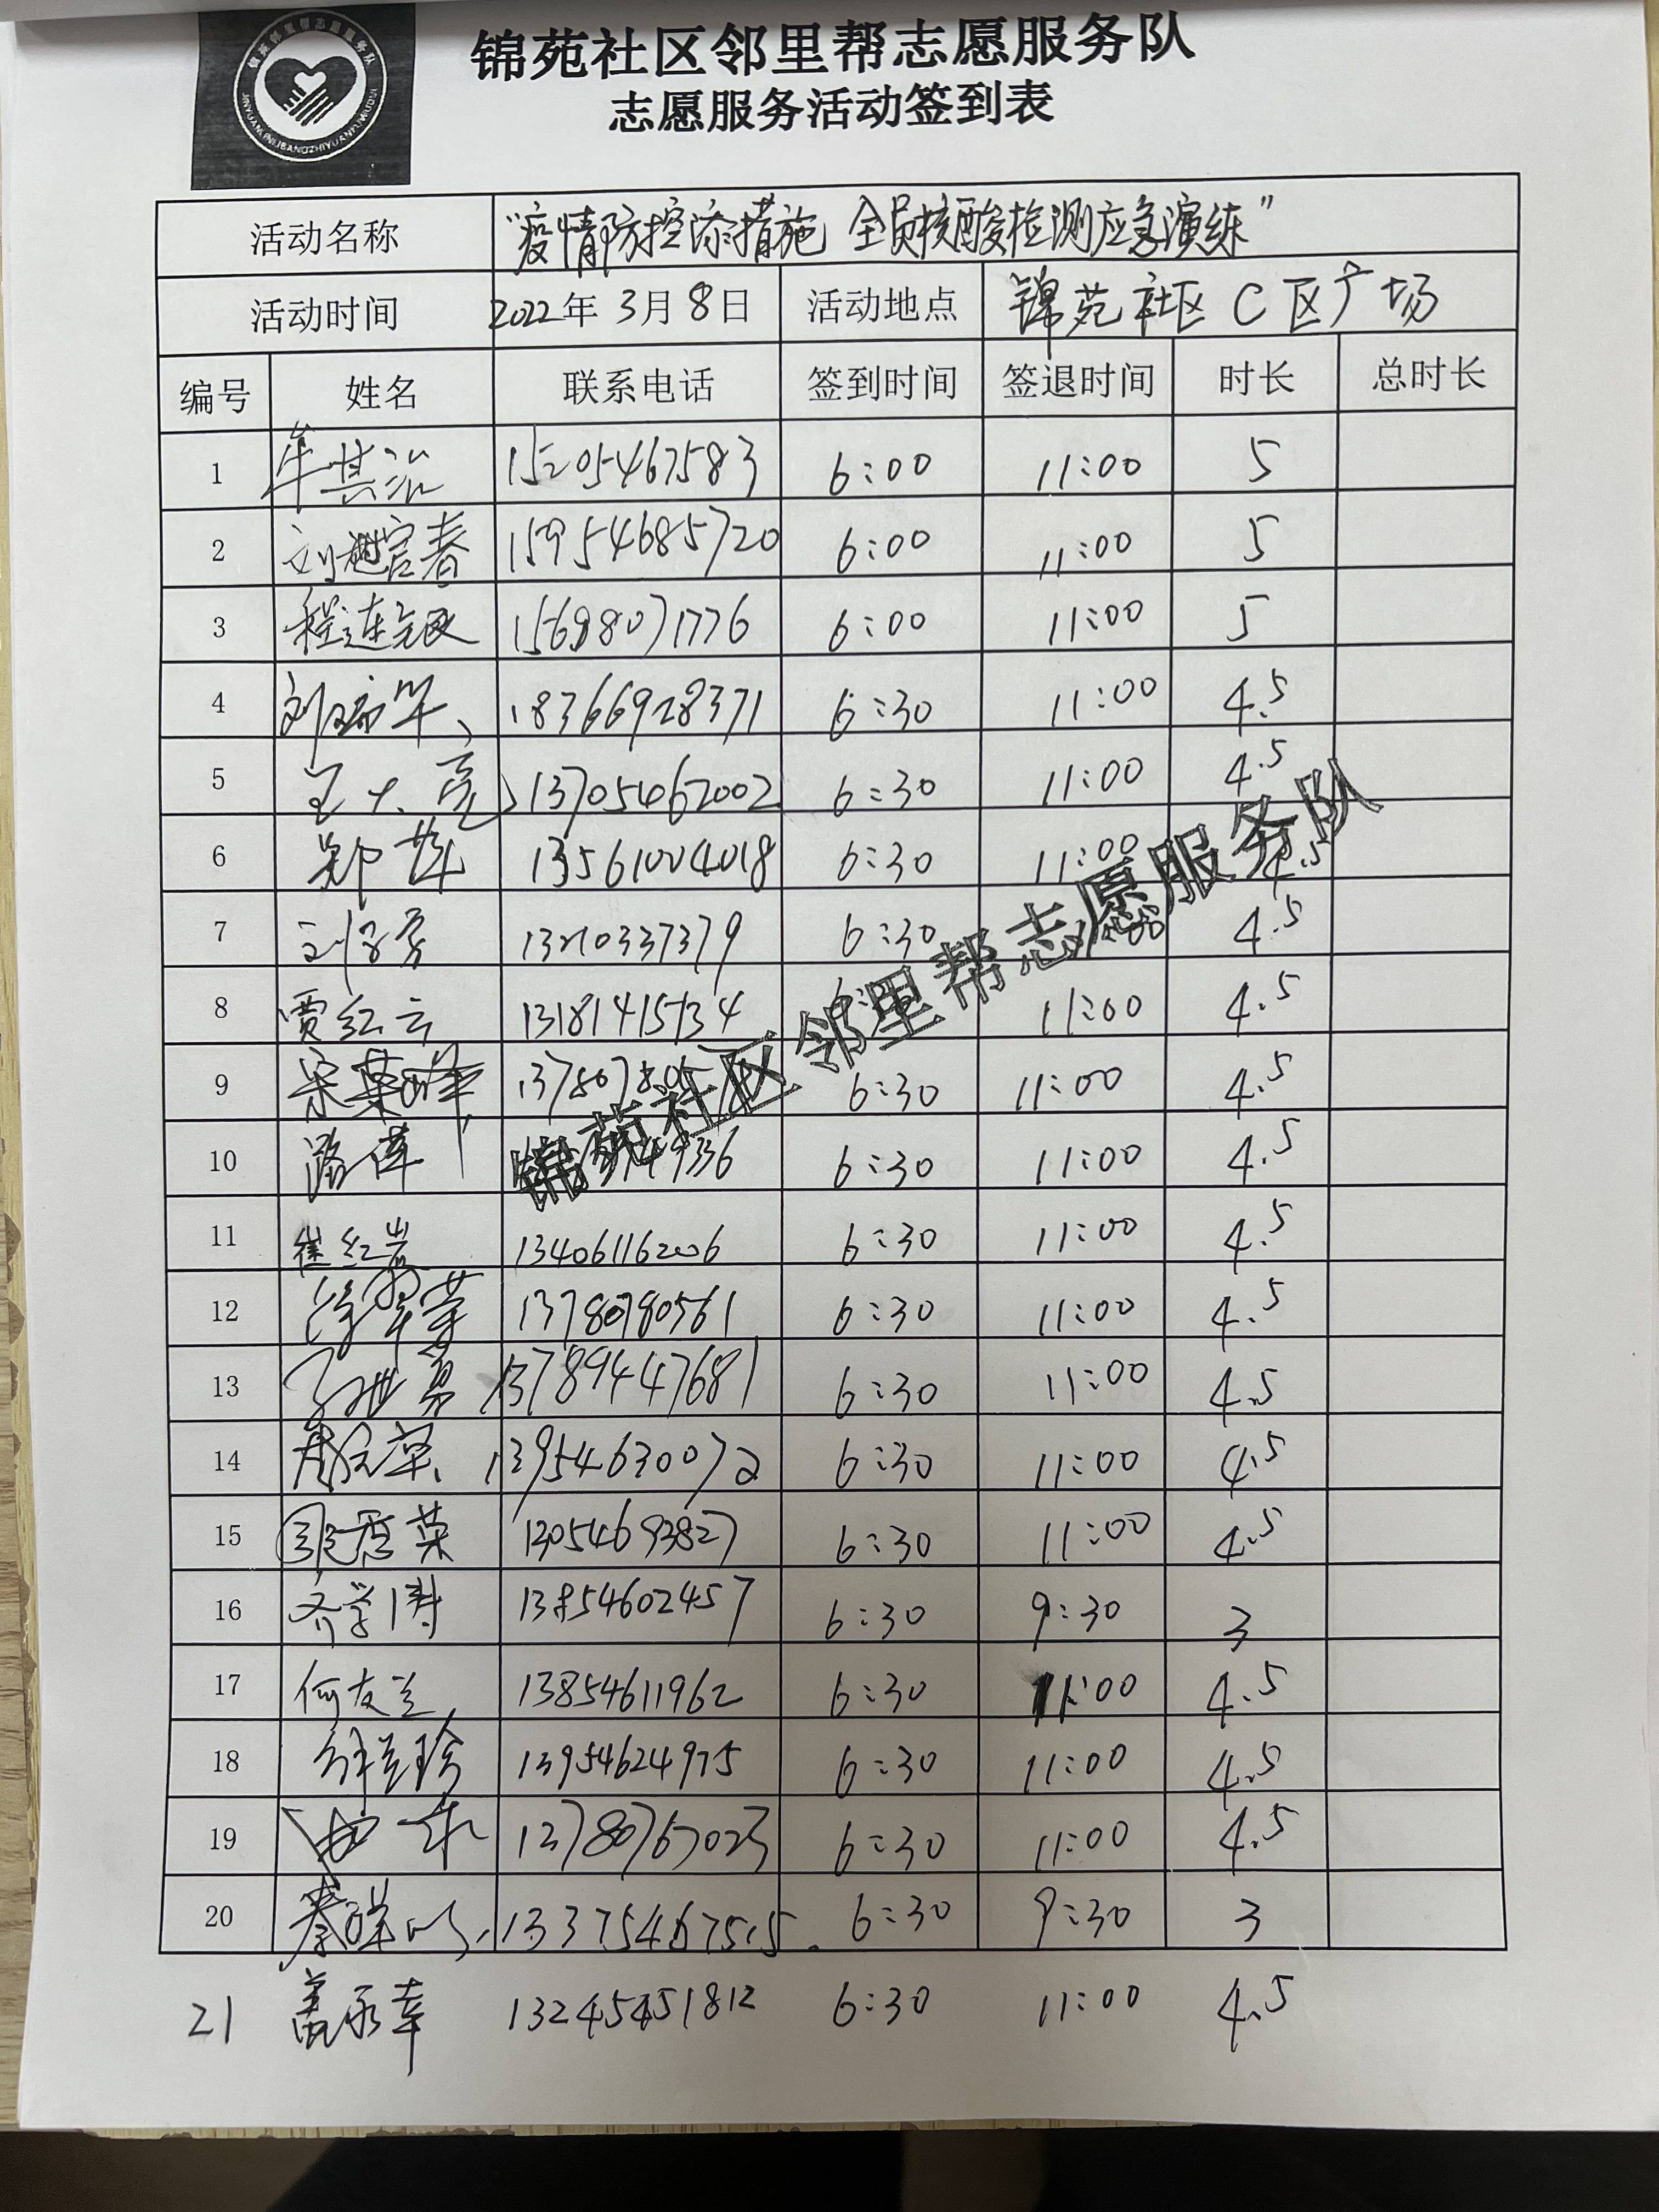 锦苑社区邻里帮志愿服务队
志愿服务活动签到表
活动名称 “疫情防控添措施 全员核酸检测应急演练”
活动时间 2022年3月8日 活动地点 锦苑社区C区广场
编号 姓名 联系电话 签到时间 签退时间 时长 总时长
1 牟其治 15205467583 6:00 11:00 5
2 15954685720 6:00 11:00 5
3 程连银 15698071776 6:00 11:00 5
4 刘瑞华 18366928371 6:30 11:00 4.5
5 王大亮 13705462002 6:30 11:00 4.5
6 13561004018 6:30 11:00 4.5
7 13210337379 6:30 4.5
8 贾红云 13181415734 11:00 4.5
9 宋荣峰 6:30 11:00 4.5
10 潘萍 6:30 11:00 4.5
11 崔红岩 13406116206 6:30 11:00 4.5
12 徐翠荣 13780780561 6:30 11:00 4.5
13 13789447681 6:30 11:00 4.5
14 13954630072 6:30 11:00 4.5
15 13054693827 6:30 11:00 4.5
16 齐学涛 13854602457 6:30 9:30 3
17 何友兰 13854611962 6:30 11:00 4.5
18 13954624975 6:30 11:00 4.5
19 13780767023 6:30 11:00 4.5
20 13375467515 6:30 9:30 3
21 盖永幸 13245451812 6:30 11:00 4.5
锦苑社区邻里帮志愿服务队